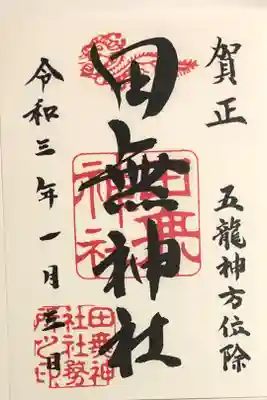 賀正
五龍神方位除
田無神社
田無神社
令和三年一月日
田無神
社社務
所之印